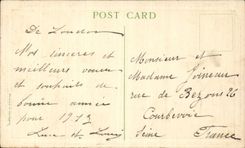 POST CARD
De London
Nos sinceres et
meilleurs voeux
et souhaits de
bonne année
pour 1913
Luce et Louis
Monsieur et
Madame Goineau
rue de Bezons 26
Courbevoie
Seine France